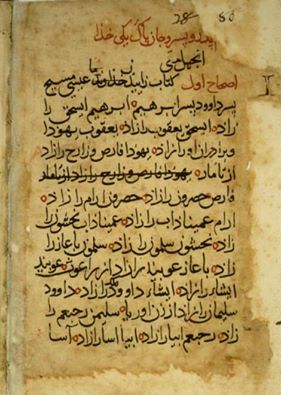 پدر و پسر و جان پاک یکی خدا
انجیل متی
اصحاح اول کتاب خداوند عیسی مسیح
پسر داوود پسر ابرهیم ه ابرهیم ایسحق را
زاده ایسحق یعقوب را زاده یعقوب یهودا
و برادران او را زاده یهودا فارص و زارح را زاد
از تامار ه یهودا فارص و زارح را زاد از تامار
فارص حصروز را زاده حصروز ارام را زاده
ارام عمیناداب را زاده عمیناداب نحشون را
زاده نحشون سلمون را زاده سلمون باعاز را
زاده باعاز عوبید را زاد از راعوث ه عوبید
ایشاء را زاده ایشاء داوود ملک را زاده داوود
سلیمان را زاد از زن اوریا ه سلیمن رحبعم را
زاده رحبعم ابیا را زاده ابیا اسا را زاده آسا